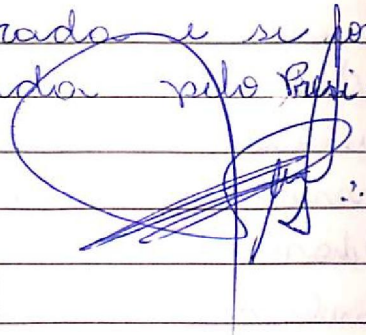 rada e se po
dia pelo Presi